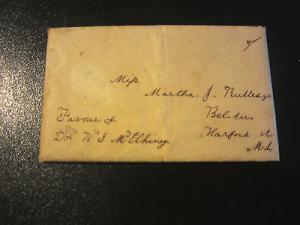 Miss
Martha J. Rutledge
Favour of
Belair
Dr W S McElhiney
Harford
Md